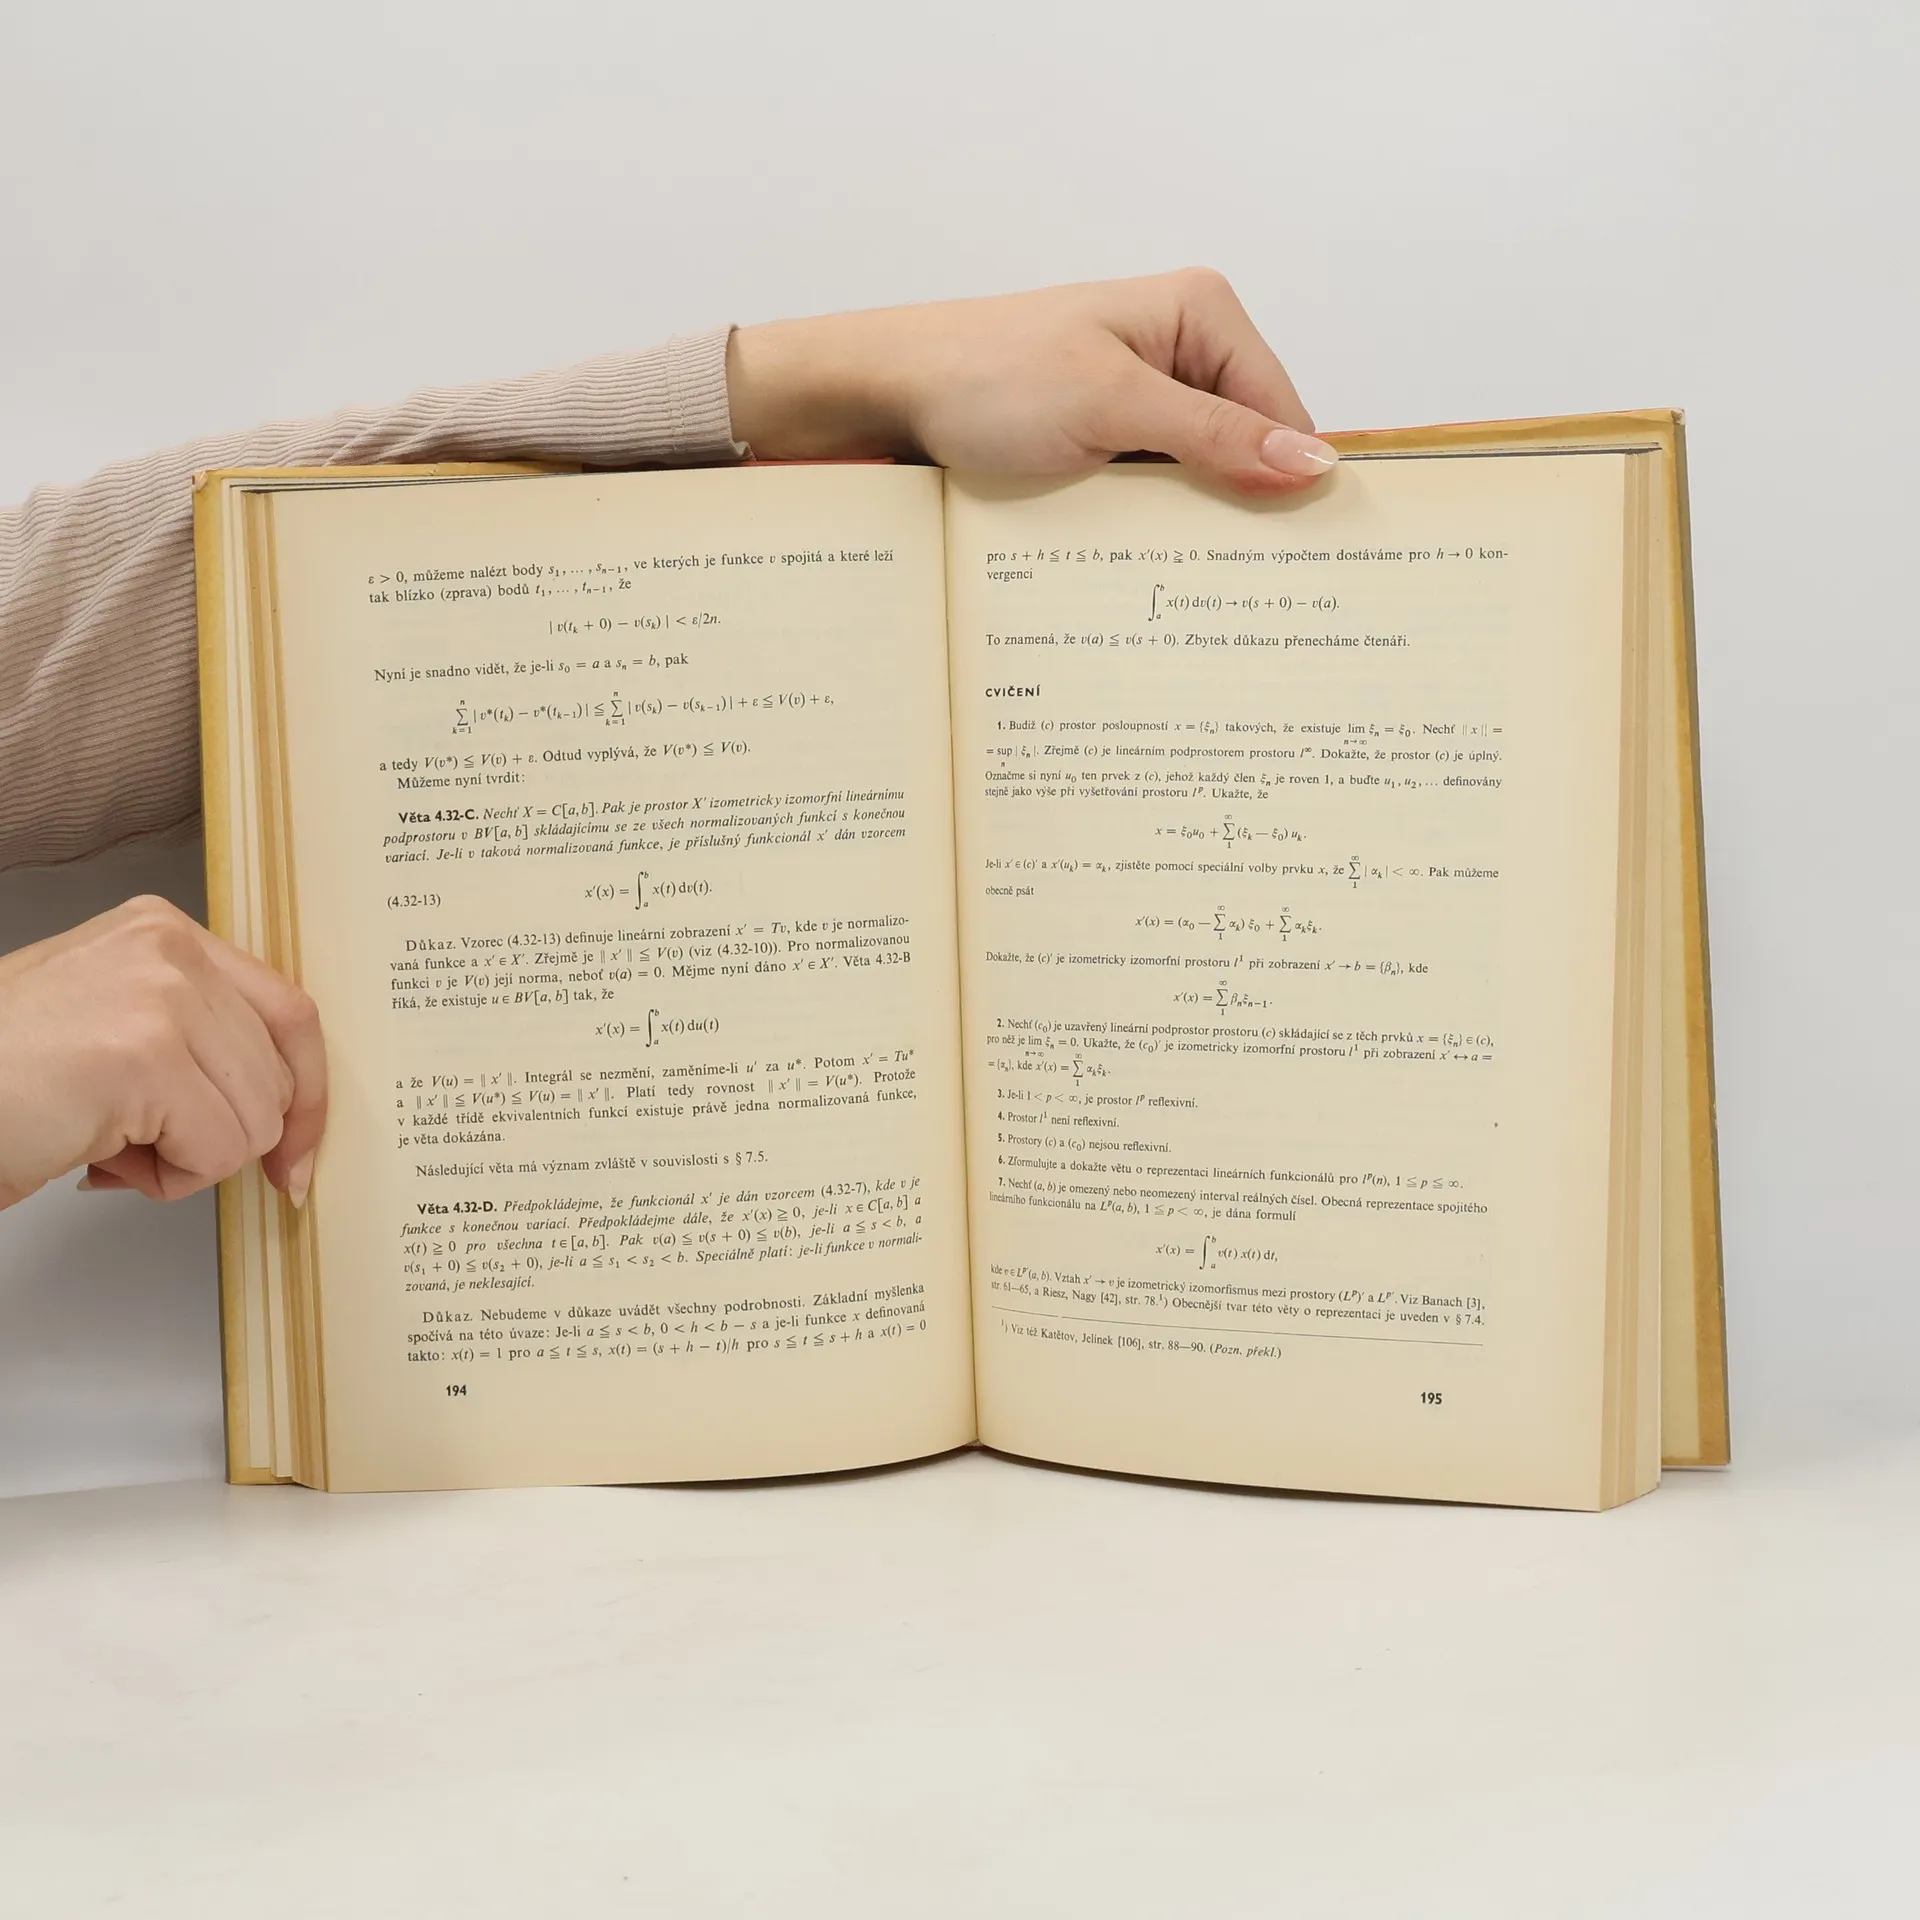 ε > 0, můžeme nalézt body s₁, ... , sₙ₋₁, ve kterých je funkce v spojitá a které leží
tak blízko (zprava) bodů t₁, ... , tₙ₋₁, že
| v(tₖ + 0) − v(sₖ) | < ε/2n.
Nyní je snadno vidět, že je-li s₀ = a a sₙ = b, pak
∑ₖ₌₁ⁿ | v*(tₖ) − v*(tₖ₋₁) | ≦ ∑ₖ₌₁ⁿ | v(sₖ) − v(sₖ₋₁) | + ε ≦ V(v) + ε,
a tedy V(v*) ≦ V(v) + ε. Odtud vyplývá, že V(v*) ≦ V(v).
Můžeme nyní tvrdit:
Věta 4.32-C. Nechť X = C[a, b]. Pak je prostor X′ izometricky izomorfní lineárnímu
podprostoru v BV[a, b] skládajícímu se ze všech normalizovaných funkcí s konečnou
variací. Je-li v taková normalizovaná funkce, je příslušný funkcionál x′ dán vzorcem
(4.32-13) x′(x) = ∫ₐᵇ x(t) dv(t).
Důkaz. Vzorec (4.32-13) definuje lineární zobrazení x′ = Tv, kde v je normalizo-
vaná funkce a x′ ∈ X′. Zřejmě je ‖ x′ ‖ ≦ V(v) (viz (4.32-10)). Pro normalizovanou
funkci v je V(v) její norma, neboť v(a) = 0. Mějme nyní dáno x′ ∈ X′. Věta 4.32-B
říká, že existuje u ∈ BV[a, b] tak, že
x′(x) = ∫ₐᵇ x(t) du(t)
a že V(u) = ‖ x′ ‖. Integrál se nezmění, zaměníme-li u′ za u*. Potom x′ = Tu*
a ‖ x′ ‖ ≦ V(u*) ≦ V(u) = ‖ x′ ‖. Platí tedy rovnost ‖ x′ ‖ = V(u*). Protože
v každé třídě ekvivalentních funkcí existuje právě jedna normalizovaná funkce,
je věta dokázána.
Následující věta má význam zvláště v souvislosti s § 7.5.
Věta 4.32-D. Předpokládejme, že funkcionál x′ je dán vzorcem (4.32-7), kde v je
funkce s konečnou variací. Předpokládejme dále, že x′(x) ≧ 0, je-li x ∈ C[a, b] a
x(t) ≧ 0 pro všechna t ∈ [a, b]. Pak v(a) ≦ v(s + 0) ≦ v(b), je-li a ≦ s < b, a
v(s₁ + 0) ≦ v(s₂ + 0), je-li a ≦ s₁ < s₂ < b. Speciálně platí: je-li funkce v normali-
zovaná, je neklesající.
Důkaz. Nebudeme v důkaze uvádět všechny podrobnosti. Základní myšlenka
spočívá na této úvaze: Je-li a ≦ s < b, 0 < h < b − s a je-li funkce x definovaná
takto: x(t) = 1 pro a ≦ t ≦ s, x(t) = (s + h − t)/h pro s ≦ t ≦ s + h a x(t) = 0
194
pro s + h ≦ t ≦ b, pak x′(x) ≧ 0. Snadným výpočtem dostáváme pro h → 0 kon-
vergenci
∫ₐᵇ x(t) dv(t) → v(s + 0) − v(a).
To znamená, že v(a) ≦ v(s + 0). Zbytek důkazu přenecháme čtenáři.
CVIČENÍ
1. Budiž (c) prostor posloupností x = {ξₙ} takových, že existuje lim ξₙ = ξ₀. Nechť ‖ x ‖ =
n→∞
= sup | ξₙ |. Zřejmě (c) je lineárním podprostorem prostoru l∞. Dokažte, že prostor (c) je úplný.
n
Označme si nyní u₀ ten prvek z (c), jehož každý člen ξₙ je roven 1, a buďte u₁, u₂, ... definovány
stejně jako výše při vyšetřování prostoru lᵖ. Ukažte, že
x = ξ₀u₀ + ∑₁∞ (ξₖ − ξ₀) uₖ.
Je-li x′ ∈ (c)′ a x′(uₖ) = αₖ, zjistěte pomocí speciální volby prvku x, že ∑₁∞ | αₖ | < ∞. Pak můžeme
obecně psát
x′(x) = (α₀ − ∑₁∞ αₖ) ξ₀ + ∑₁∞ αₖξₖ.
Dokažte, že (c)′ je izometricky izomorfní prostoru l¹ při zobrazení x′ → b = {βₙ}, kde
x′(x) = ∑₁∞ βₙξₙ₋₁.
2. Nechť (c₀) je uzavřený lineární podprostor prostoru (c) skládající se z těch prvků x = {ξₙ} ∈ (c),
pro něž je lim ξₙ = 0. Ukažte, že (c₀)′ je izometricky izomorfní prostoru l¹ při zobrazení x′ ↔ a =
n→∞
= {αₙ}, kde x′(x) = ∑₁∞ αₖξₖ.
3. Je-li 1 < p < ∞, je prostor lᵖ reflexivní.
4. Prostor l¹ není reflexivní.
5. Prostory (c) a (c₀) nejsou reflexivní.
6. Zformulujte a dokažte větu o reprezentaci lineárních funkcionálů pro lᵖ(n), 1 ≦ p ≦ ∞.
7. Nechť (a, b) je omezený nebo neomezený interval reálných čísel. Obecná reprezentace spojitého
lineárního funkcionálu na Lᵖ(a, b), 1 ≦ p < ∞, je dána formulí
x′(x) = ∫ₐᵇ v(t) x(t) dt,
kde v ∈ Lᵖ′(a, b). Vztah x′ → v je izometrický izomorfismus mezi prostory (Lᵖ)′ a Lᵖ′. Viz Banach [3],
str. 61—65, a Riesz, Nagy [42], str. 78.¹) Obecnější tvar této věty o reprezentaci je uveden v § 7.4.
¹) Viz též Katětov, Jelínek [106], str. 88—90. (Pozn. překl.)
195